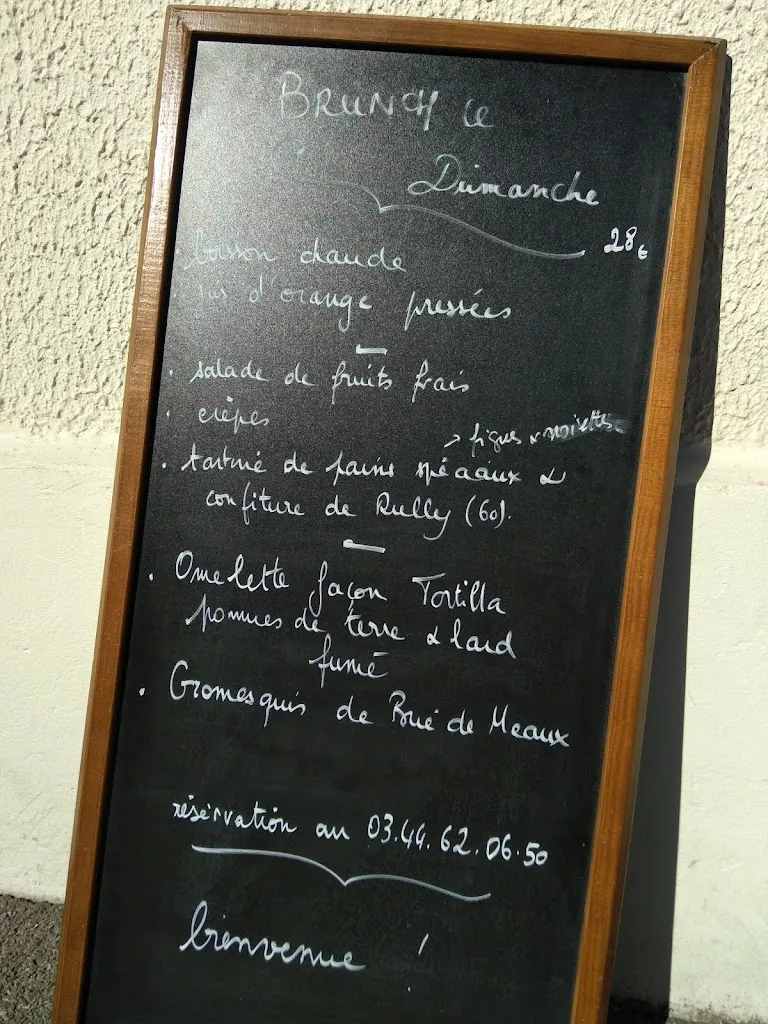 BRUNCH le
Dimanche
28€
. boisson chaude
. jus d'orange pressées
. salade de fruits frais
. crêpes
→ figues & noisettes
. tartine de pains spéciaux &
confiture de Rully (60).
. Omelette façon Tortilla
pommes de terre & lard
fumé
. Cromesquis de Brie de Meaux
réservation au 03.44.62.06.50
bienvenue !